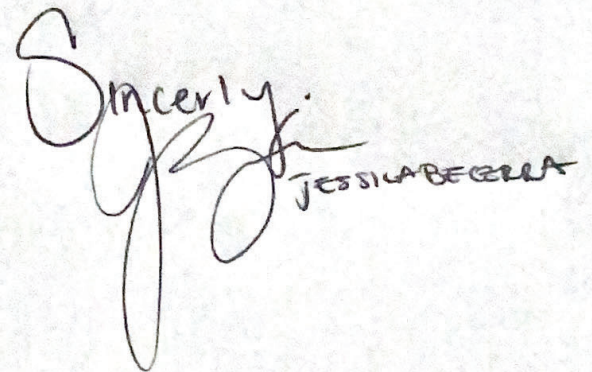 Sincerly.
JESSICA BECERRA